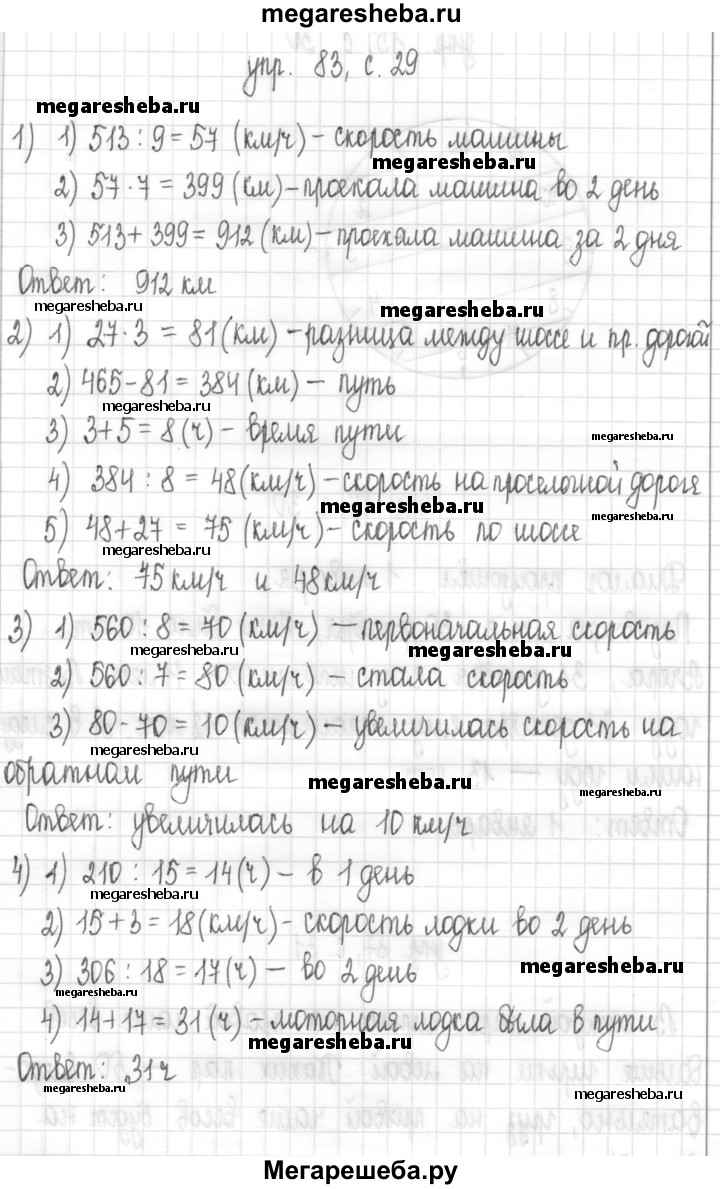 megaresheba.ru
упр. 83, с. 29
megaresheba.ru
1) 1) 513 : 9 = 57 (км/ч) – скорость машины
megaresheba.ru
2) 57 · 7 = 399 (км) – проехала машина во 2 день
3) 513 + 399 = 912 (км) – проехала машина за 2 дня
Ответ: 912 км
megaresheba.ru
megaresheba.ru
2) 1) 27 · 3 = 81 (км) – разница между шоссе и пр. дорогой
2) 465 – 81 = 384 (км) – путь
megaresheba.ru
3) 3 + 5 = 8 (ч) – время пути
megaresheba.ru
4) 384 : 8 = 48 (км/ч) – скорость на проселочной дороге
megaresheba.ru
megaresheba.ru
5) 48 + 27 = 75 (км/ч) – скорость по шоссе
megaresheba.ru
Ответ: 75 км/ч и 48 км/ч
3) 1) 560 : 8 = 70 (км/ч) – первоначальная скорость
megaresheba.ru
megaresheba.ru
2) 560 : 7 = 80 (км/ч) – стала скорость
3) 80 - 70 = 10 (км/ч) – увеличилась скорость на
megaresheba.ru
обратном пути
megaresheba.ru
megaresheba.ru
Ответ: увеличилась на 10 км/ч
4) 1) 210 : 15 = 14 (ч) – в 1 день
megaresheba.ru
2) 15 + 3 = 18 (км/ч) - скорость лодки во 2 день
3) 306 : 18 = 17 (ч) – во 2 день
megaresheba.ru
megaresheba.ru
4) 14 + 17 = 31 (ч) – моторная лодка была в пути
megaresheba.ru
Ответ: 31 ч
megaresheba.ru
megaresheba.ru
Мегарешеба.ру